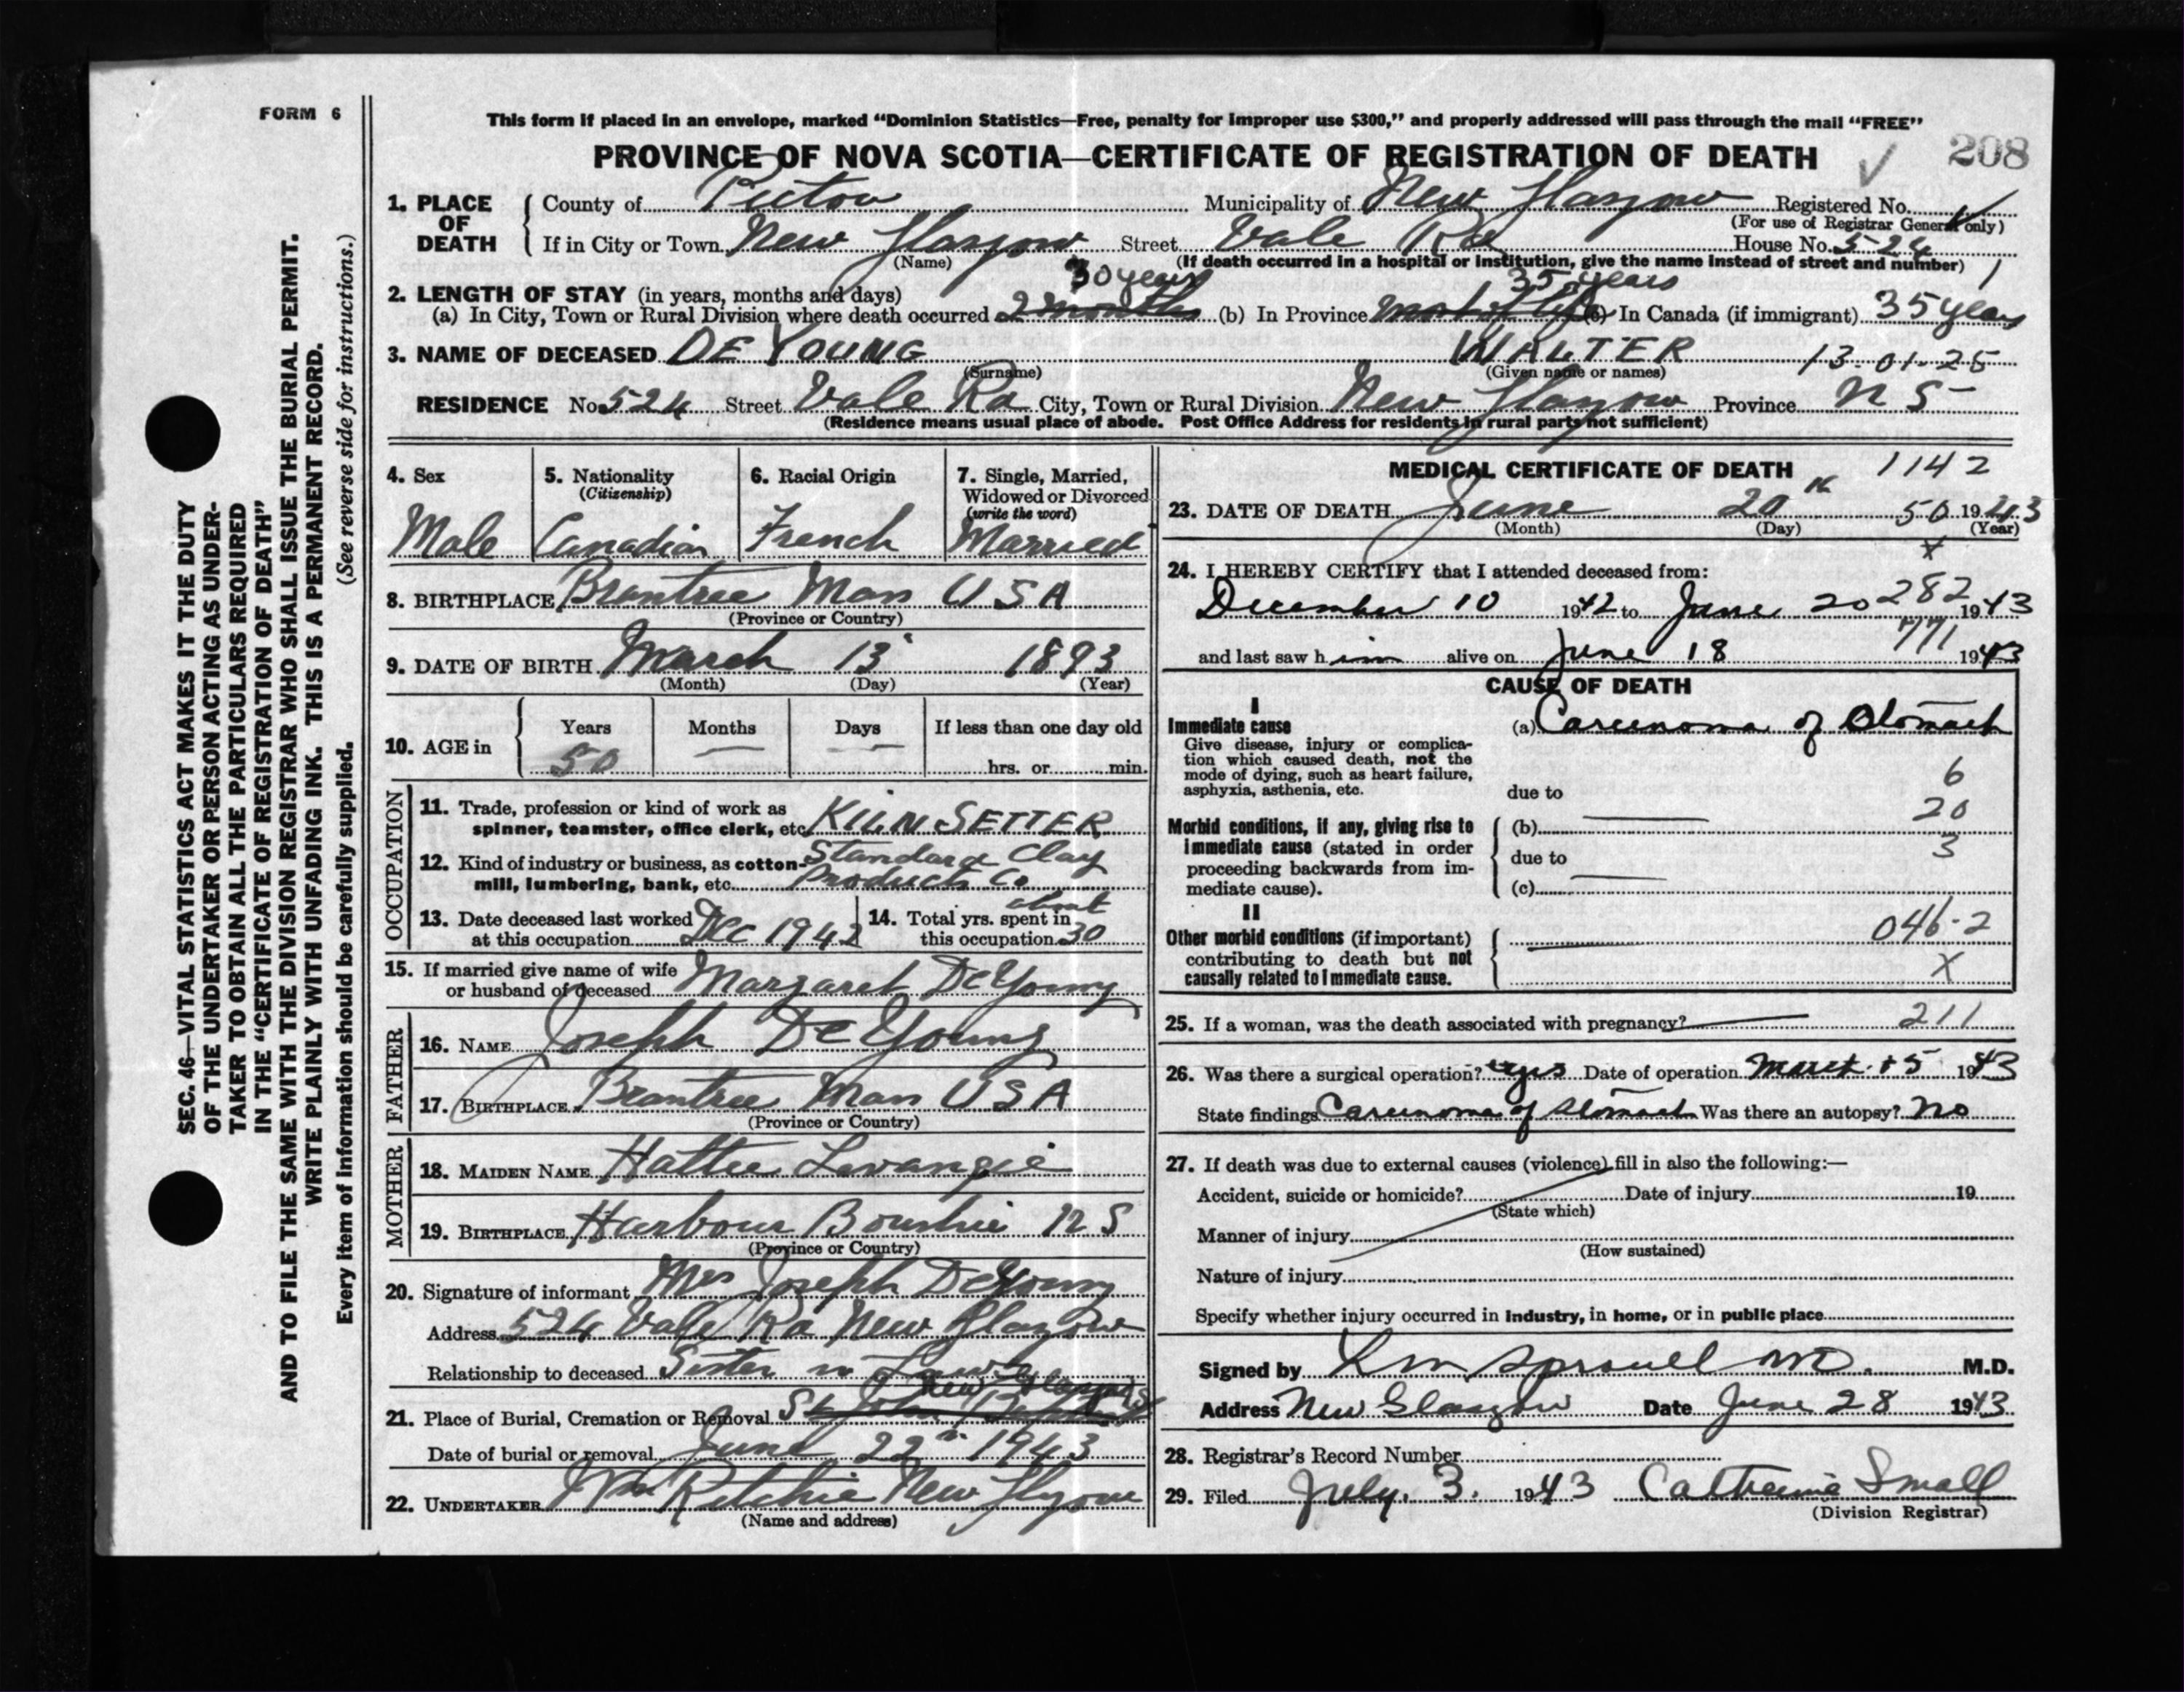 FORM 6
SEC. 46—VITAL STATISTICS ACT MAKES IT THE DUTY
OF THE UNDERTAKER OR PERSON ACTING AS UNDER-
TAKER TO OBTAIN ALL THE PARTICULARS REQUIRED
IN THE "CERTIFICATE OF REGISTRATION OF DEATH"
AND TO FILE THE SAME WITH THE DIVISION REGISTRAR WHO SHALL ISSUE THE BURIAL PERMIT.
WRITE PLAINLY WITH UNFADING INK. THIS IS A PERMANENT RECORD.
Every item of information should be carefully supplied. (See reverse side for instructions.)
This form if placed in an envelope, marked "Dominion Statistics—Free, penalty for improper use $300," and properly addressed will pass through the mail "FREE"
PROVINCE OF NOVA SCOTIA—CERTIFICATE OF REGISTRATION OF DEATH 208
1. PLACE OF DEATH
County of Pictou Municipality of New Glasgow Registered No.
(For use of Registrar General only)
If in City or Town New Glasgow Street Vale Rd House No. 524
(Name) (If death occurred in a hospital or institution, give the name instead of street and number) 1
30 years 35 years
2. LENGTH OF STAY (in years, months and days)
(a) In City, Town or Rural Division where death occurred 2 months (b) In Province most of life (c) In Canada (if immigrant) 35 years
3. NAME OF DECEASED DE YOUNG WALTER 13-01-25
(Surname) (Given name or names)
RESIDENCE No. 524 Street Vale Rd City, Town or Rural Division New Glasgow Province N S
(Residence means usual place of abode. Post Office Address for residents in rural parts not sufficient)
4. Sex 5. Nationality (Citizenship) 6. Racial Origin 7. Single, Married, Widowed or Divorced (write the word)
Male Canadian French Married
8. BIRTHPLACE Brantree Mass U S A
(Province or Country)
9. DATE OF BIRTH March 13 1893
(Month) (Day) (Year)
10. AGE in Years Months Days If less than one day old
50 — — hrs. or min.
OCCUPATION
11. Trade, profession or kind of work as
spinner, teamster, office clerk, etc. KILN SETTER
12. Kind of industry or business, as cotton- Standard Clay
mill, lumbering, bank, etc. Products Co
13. Date deceased last worked at this occupation Dec 1942
14. Total yrs. spent in this occupation about 30
15. If married give name of wife
or husband of deceased Margaret DeYoung
FATHER
16. NAME Joseph DeYoung
17. BIRTHPLACE Brantree Mass U S A
(Province or Country)
MOTHER
18. MAIDEN NAME Hattie Levangie
19. BIRTHPLACE Harbour Boushie N S
(Province or Country)
20. Signature of informant Mrs Joseph DeYoung
Address 524 Vale Rd New Glasgow
Relationship to deceased Sister in Law
21. Place of Burial, Cremation or Removal St John
Date of burial or removal June 22nd 1943
22. UNDERTAKER Wm Ritchie New Glasgow
(Name and address)
MEDICAL CERTIFICATE OF DEATH 1142
23. DATE OF DEATH June 20th 50 1943
(Month) (Day) (Year)
x
24. I HEREBY CERTIFY that I attended deceased from:
282
December 10 1942 to June 20 1943
771
and last saw him alive on June 18 1943
CAUSE OF DEATH
I
Immediate cause (a) Carcinoma of Stomach
Give disease, injury or complica-
tion which caused death, not the
mode of dying, such as heart failure, 6
asphyxia, asthenia, etc. due to
20
Morbid conditions, if any, giving rise to (b) —
immediate cause (stated in order due to 3
proceeding backwards from im-
mediate cause). (c) —
II
Other morbid conditions (if important) 046-2
contributing to death but not
causally related to immediate cause. X
25. If a woman, was the death associated with pregnancy? — 211
26. Was there a surgical operation? yes Date of operation March 15 1943
State findings Carcinoma of Stomach Was there an autopsy? No
27. If death was due to external causes (violence) fill in also the following:—
Accident, suicide or homicide? Date of injury 19
(State which)
Manner of injury
(How sustained)
Nature of injury
Specify whether injury occurred in industry, in home, or in public place
Signed by Sproull MD. M.D.
Address New Glasgow Date June 28 1943
28. Registrar's Record Number
29. Filed July. 3. 1943 Catherine Small
(Division Registrar)